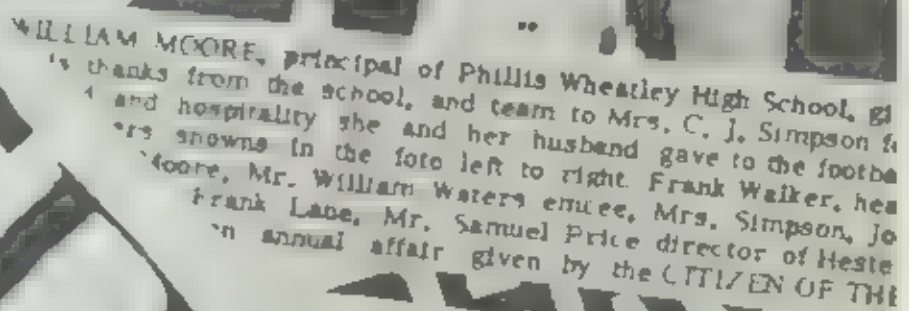 WILLIAM MOORE, principal of Phillis Wheatley High School, gi
's thanks from the school, and team to Mrs. C. J. Simpson f
and hospitality she and her husband gave to the footba
ers snowns in the foto left to right. Frank Walker, hea
Moore, Mr. William Waters emcee, Mrs. Simpson, Jo
Frank Lane, Mr. Samuel Price director of Heste
an annual affair given by the CITIZEN OF THE